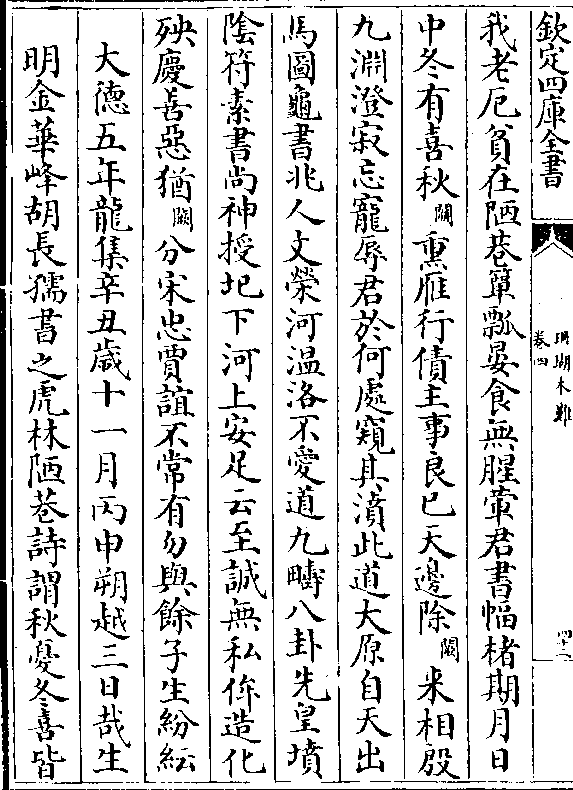 欽定四庫全書
珊瑚木難
卷四
四十二
我老厄貧在陋巷簞瓢晏食無腥葷君書幅楮期月日
中冬有喜秋闕熏雁行債主事良已天邊除闕来相殷
九淵澄寂忘寵辱君於何處窺其濆此道大原自天出
馬圖龜書兆人文榮河溫洛不愛道九疇八卦先皇墳
陰符素書尚神授圯下河上安足云至誠無私侔造化
殃慶善惡猶闕分宋忠賈誼不常有勿與餘子生紛紜
大德五年龍集辛丑歲十一月丙申朔越三日哉生
明金華峰胡長孺書之虎林陋巷詩謂秋憂冬喜皆